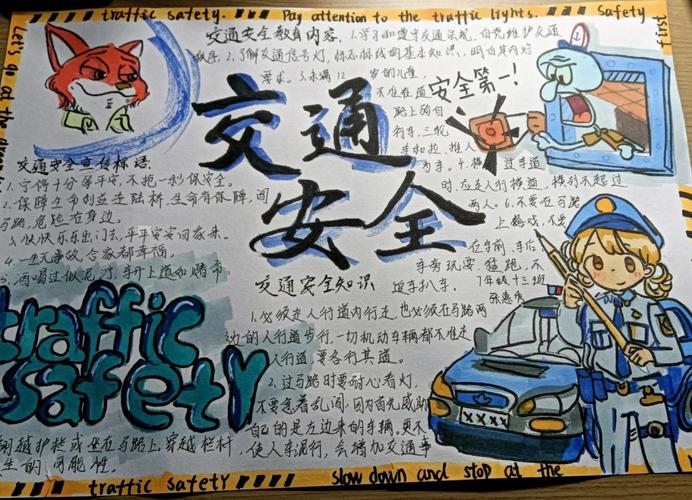 traffic safety. Pay attention to the traffic lights. Safety first
Let's go at the
交通安全教育内容。1.学习和遵守交通法规,自觉维护交通
秩序。2.了解交通信号灯、标志标线的基本知识,明白其内容
要求。3.未满12岁的儿童,
不准在道
路上骑自
行车、三轮
车和拉、推人
力车。4.横过车道
时,应走人行横道,横列不超过
两人。6.不要在马路
上嬉戏,不要
在车前、车后
车旁玩耍、猛跑,不
追车扒车。
安全第一!
7年级十三班
交通
安全
交通安全宣传标语
1.宁停十分等平安,不抢一秒保安全。
2.保障生命刹正走路桥,生命有保障,闯
马路,危险在身边。
3.快快乐乐出门去,平平安安回家来。
4.一生无事故,合家都幸福,
5.酒喝过似泥,车开上道如赌命
traffic
safety
翻越护栏或坐在马路上,穿越栏杆,
生的可能性。
交通安全知识
1.必须走人行道内行走也必须在马路两
边的人行道步行,一切机动车辆都不准走
人行道,要各行其道。
2.过马路时要耐心看灯,
不要急着乱闯,因为首先威胁
自己的是左边来的车辆,更不
使人车混行,会增加交通事
XXXX
traffic safety
slow down and stop at the